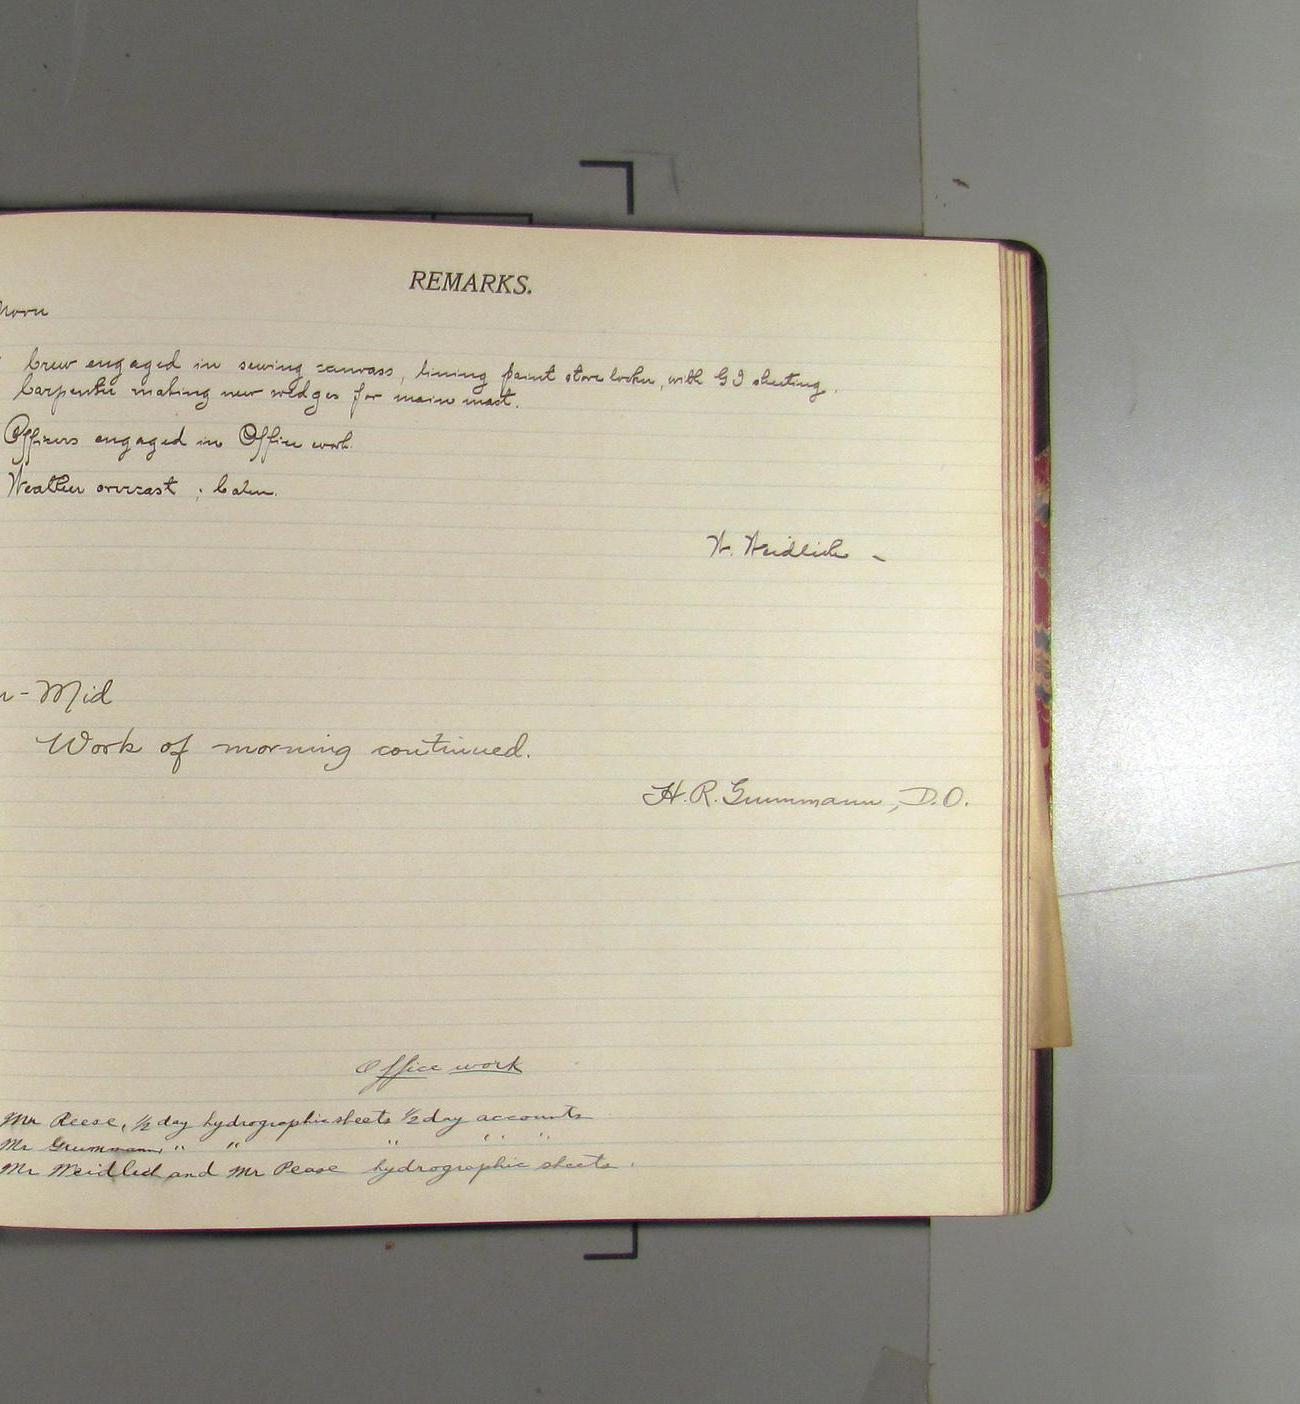 REMARKS.
Crew engaged in sewing canvass, lining paint store locker, with G I sheeting.
Carpenter making new wedges for main mast.
Officers engaged in Office work.
Weather overcast ; Calm.
W. Weidlich
- Mid
Work of morning continued.
H. R. Grummann, D.O.
Office work
Mr Reese, 1/2 day hydrographic sheets 1/2 day accounts
Mr Grummann, " " " " "
Mr Weidlich and Mr Pease hydrographic sheets.